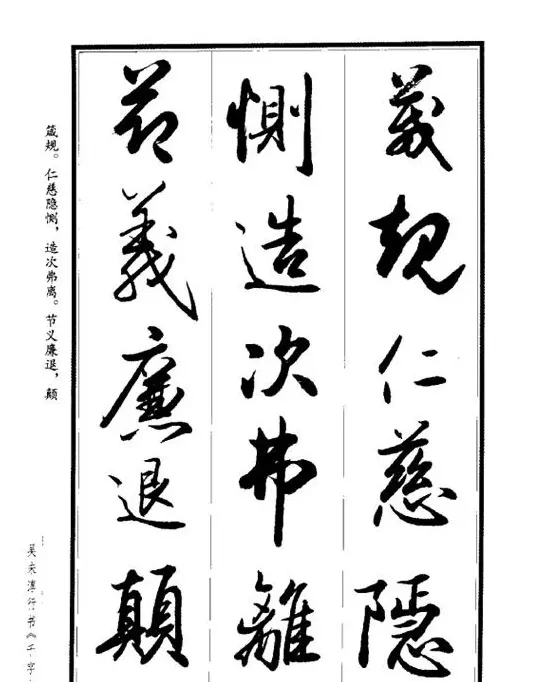 箴規仁慈隱
惻造次弗離
節義廉退顛
箴规。仁慈隐恻，造次弗离。节义廉退，颠
吴未淳行书《千字